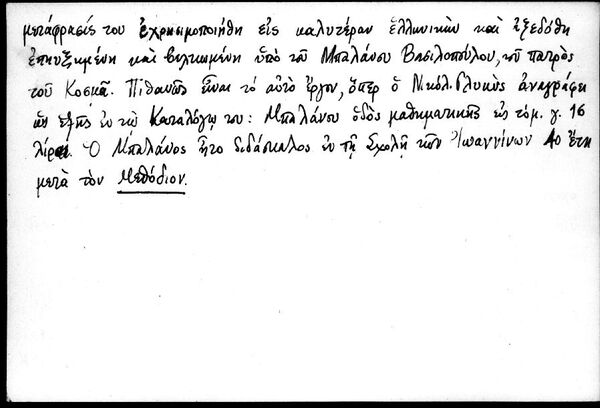 μετάφρασίς του ἐχρησιμοποιήθη εἰς καλυτέραν ἑλληνικὴν καὶ ἐξεδόθη
ἐπηυξημένη καὶ βελτιωμένη ὑπὸ τοῦ Μπαλάνου Βασιλοπούλου, τοῦ πατρὸς
τοῦ Κοσμᾶ. Πιθανῶς εἶναι τὸ αὐτὸ ἔργον, ὅπερ ὁ Νικόλ. Γλυκὺς ἀναγράφει
ὡς ἑξῆς ἐν τῷ Καταλόγῳ του: Μπαλάνου ὁδὸς μαθηματικῆς εἰς τόμ. γ. 16
λίραι. Ὁ Μπαλάνος ἦτο διδάσκαλος ἐν τῇ Σχολῇ τῶν Ἰωαννίνων 40 ἔτη
μετὰ τὸν Μεθόδιον.